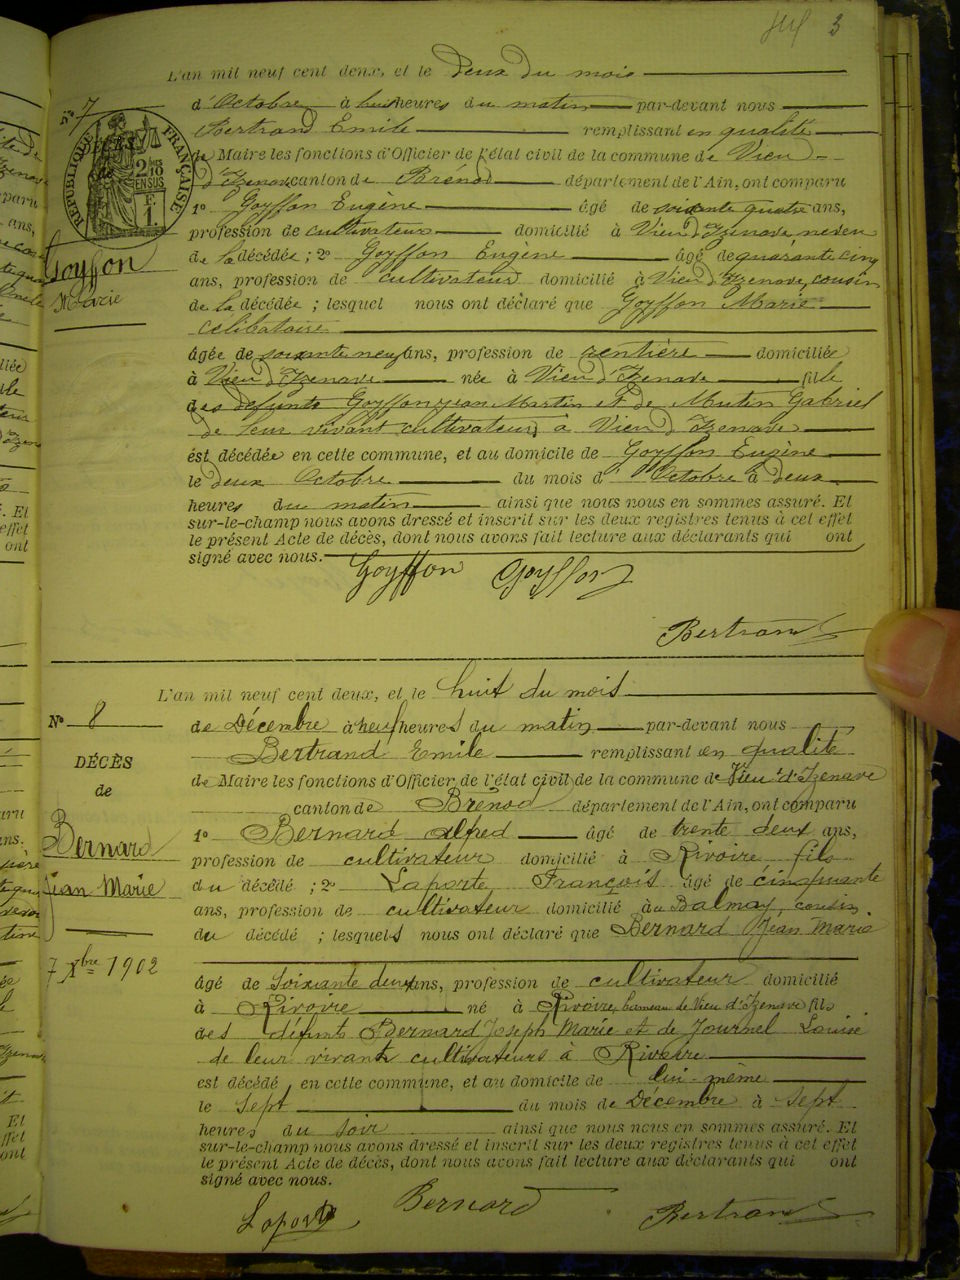 3
L'an mil neuf cent deux, et le Deux du mois
N° 7
d'Octobre à huit heures du matin par-devant nous
Bertrand Emile remplissant en qualité
de Maire les fonctions d'Officier de l'état civil de la commune de Vieu
d'Izenave canton de Brénod département de l'Ain, ont comparu
RÉPUBLIQUE FRANÇAISE
DÉCÈS
de
1° Goyffon Eugène âgé de soixante quatre ans,
profession de cultivateur domicilié à Vieu d'Izenave, neveu
de la décédée ; 2° Goyffon Eugène âgé de quarante cinq
Goyffon
Marie
ans, profession de cultivateur domicilié à Vieu d'Izenave, cousin
de la décédée ; lesquel nous ont déclaré que Goyffon Marie
célibataire
âgée de soixante neuf ans, profession de rentière domiciliée
à Vieu d'Izenave née à Vieu d'Izenave fille
des défunts Goyffon Jean Martin et de Mutin Gabriel
de leur vivant cultivateurs à Vieu d'Izenave
est décédée en cette commune, et au domicile de Goyffon Eugène
le deux Octobre du mois d' Octobre à deux
heures du matin ainsi que nous nous en sommes assuré. Et
sur-le-champ nous avons dressé et inscrit sur les deux registres tenus à cet effet
le présent Acte de décès, dont nous avons fait lecture aux déclarants qui ont
signé avec nous.
Goyffon Goyffon
Bertrand
L'an mil neuf cent deux, et le huit du mois
N° 8
de Décembre à neuf heures du matin par-devant nous
Bertrand Emile remplissant en qualité
DÉCÈS
de
de Maire les fonctions d'Officier de l'état civil de la commune de Vieu d'Izenave
canton de Brénod département de l'Ain, ont comparu
Bernard
Jean Marie
1° Bernard alfred âgé de trente deux ans,
profession de cultivateur domicilié à Rivoire fils
du décédé ; 2° Laporte François âgé de cinquante
ans, profession de cultivateur domicilié au Balmay, cousin
du décédé ; lesquels nous ont déclaré que Bernard Jean Marie
7 Xbre 1902
âgé de soixante deux ans, profession de cultivateur domicilié
à Rivoire né à Rivoire, hameau de Vieu d'Izenave fils
des défunts Bernard Joseph Marie et de Journel Louise
de leur vivant cultivateurs à Rivoire
est décédé en cette commune, et au domicile de lui-même
le sept du mois de Décembre à sept
heures du soir ainsi que nous nous en sommes assuré. Et
sur-le-champ nous avons dressé et inscrit sur les deux registres tenus à cet effet
le présent Acte de décès, dont nous avons fait lecture aux déclarants qui ont
signé avec nous.
Laporte Bernard Bertrand